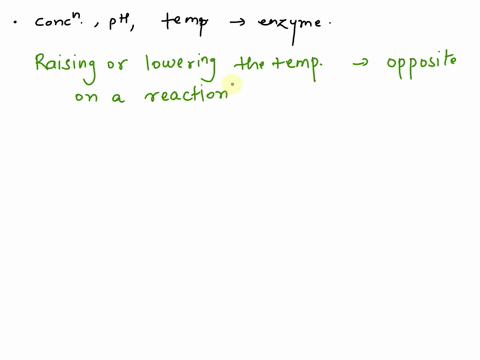 . concⁿ. , pH, temp → enzyme.
Raising or lowering the temp. → opposite
on a reaction